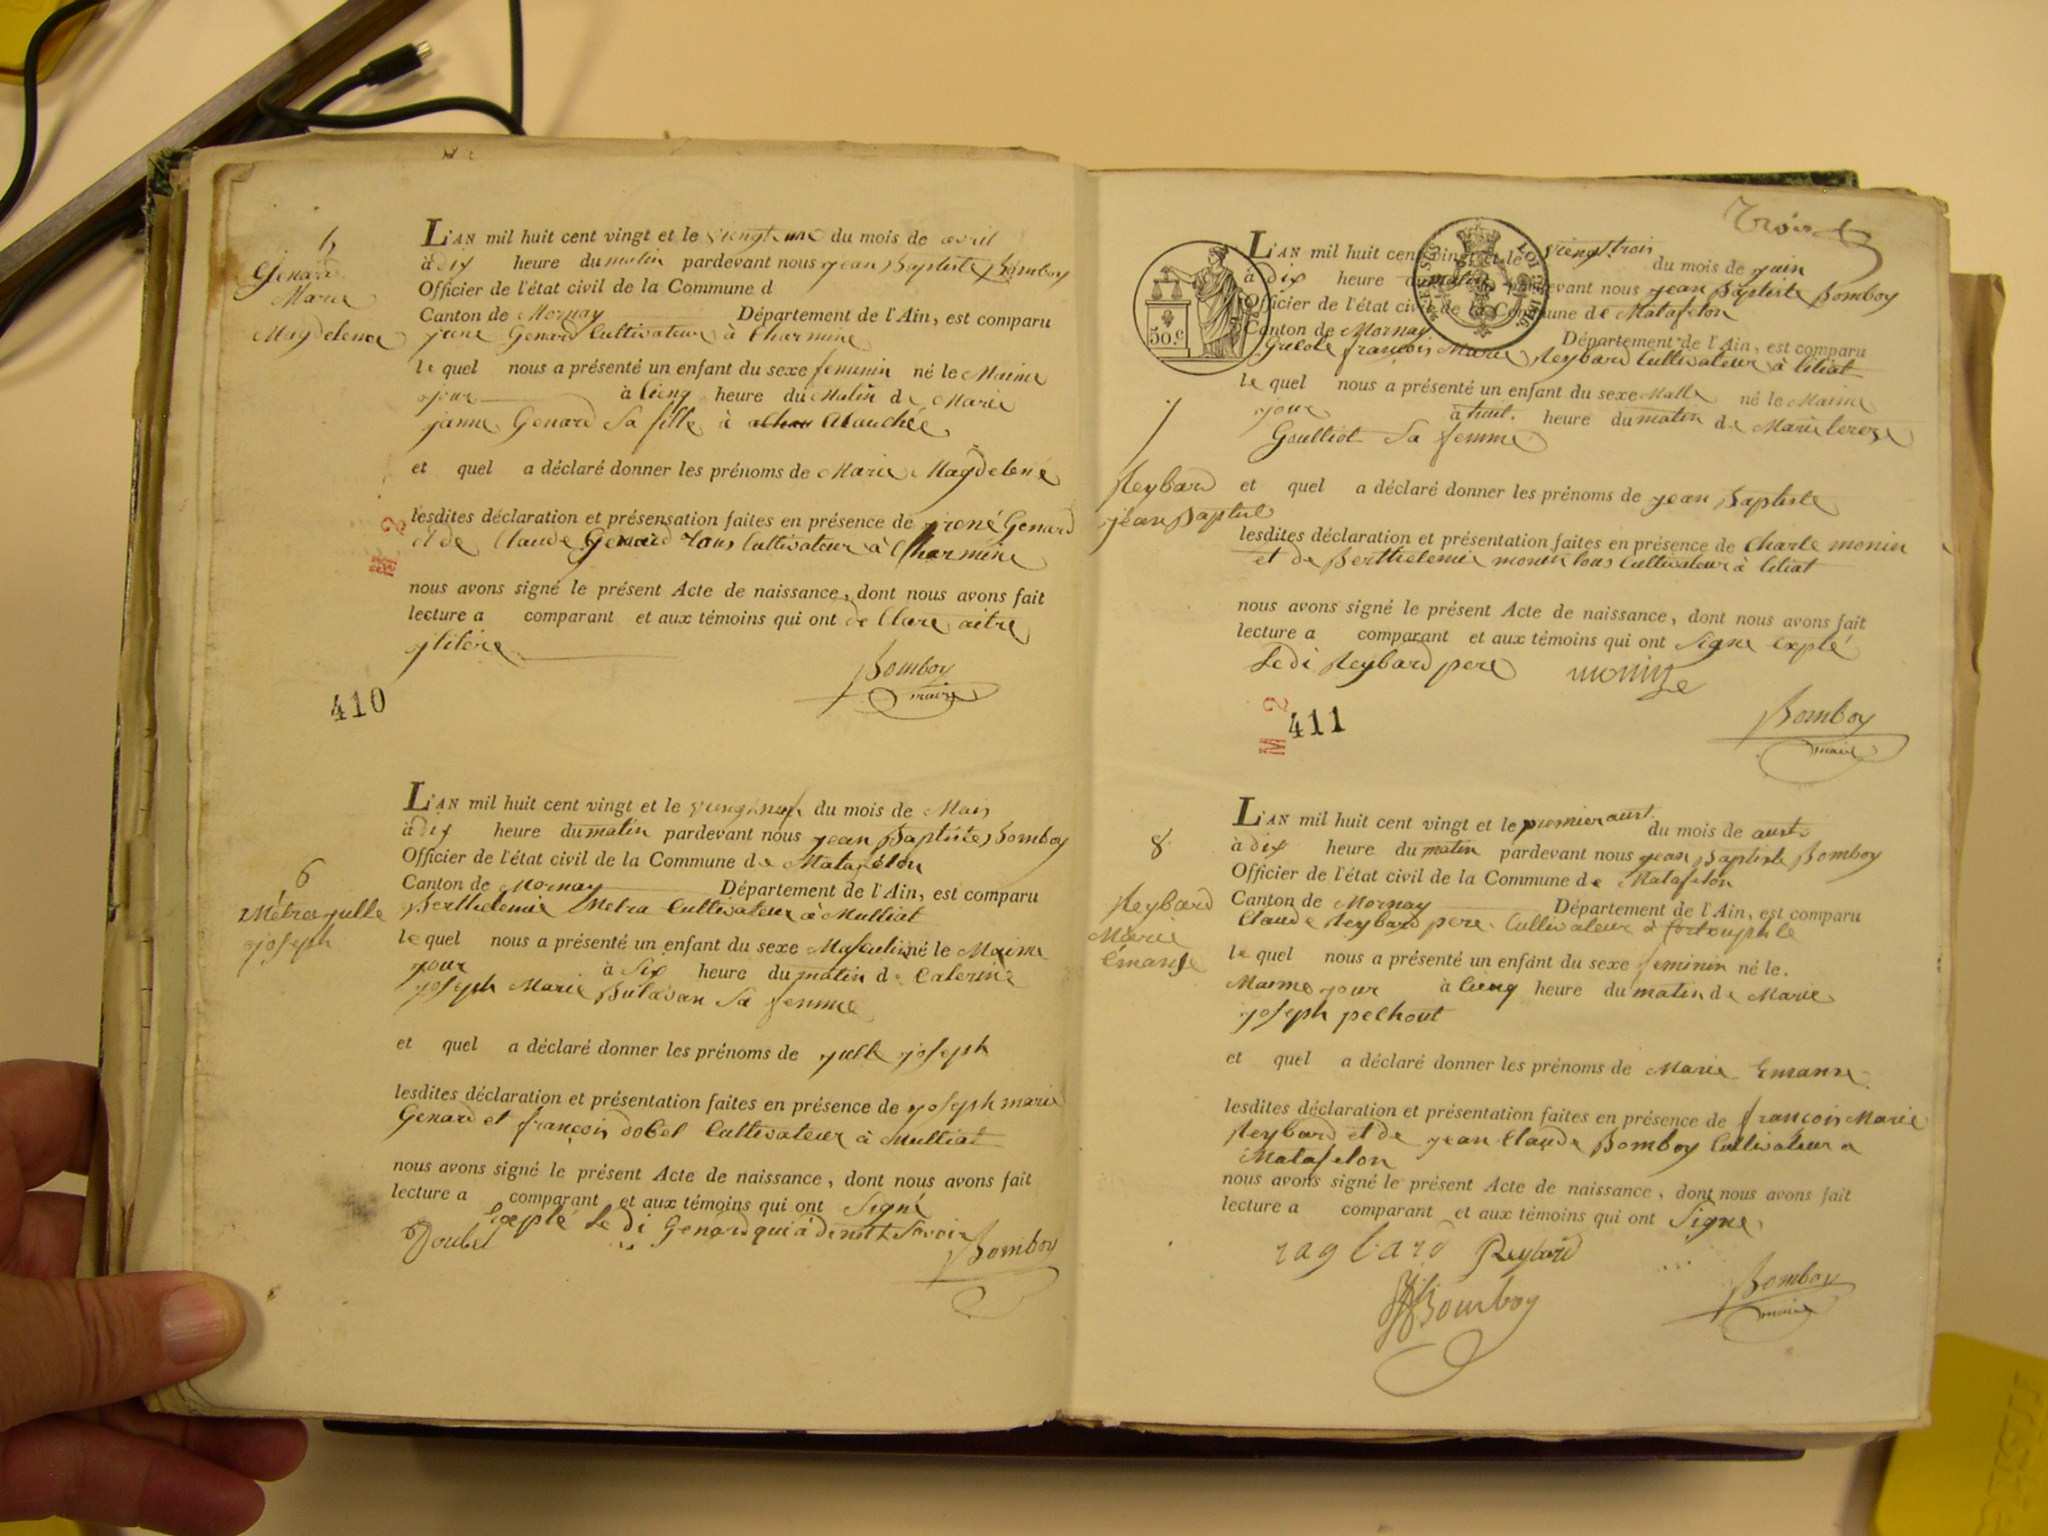 5
Genard
Marie
Magdelene
L'AN mil huit cent vingt et le viengt une du mois de avril
à dix heure du matin pardevant nous jean Baptiste Bomboy
Officier de l'état civil de la Commune d
Canton de Mornay Département de l'Ain, est comparu
Genard Cultivateur à Charmine
le quel nous a présenté un enfant du sexe feminin né le Maime
jour à cienq heure du Matin de Marie
janne Genard Sa fille à
et quel a déclaré donner les prénoms de Marie Magdelene
lesdites déclaration et présensation faites en présence de Genard
et de Claude Genard tous Cultivateur à Charmine
nous avons signé le présent Acte de naissance, dont nous avons fait
lecture a comparant et aux témoins qui ont de Clare aitre
jlitére
Bomboy
maire
M 2
410
6
Metra julle
joseph
L'AN mil huit cent vingt et le viengt neuf du mois de Mais
à dix heure du matin pardevant nous jean Baptiste Bomboy
Officier de l'état civil de la Commune de Matafelon
Canton de Mornay Département de l'Ain, est comparu
Berthelemie Metra Cultivateur à Mulliat
le quel nous a présenté un enfant du sexe Masculin né le Maime
jour à Six heure du matin de Caterine
joseph Marie Sa femme
et quel a déclaré donner les prénoms de julle joseph
lesdites déclaration et présentation faites en présence de joseph marie
Genard et françois dobel Cultivateur à Mulliat
nous avons signé le présent Acte de naissance, dont nous avons fait
lecture a comparant et aux témoins qui ont Signé
Exeplé Le di Genard qui à
Doubel Bomboy
Trois
50.c
LOI DE 1816
7
Reybard
jean Baptiste
L'AN mil huit cent vingt et le viengt trois du mois de juin
à dix heure du matin pardevant nous jean Baptiste Bomboy
Officier de l'état civil de la Commune de Matafelon
Canton de Mornay Département de l'Ain, est comparu
françois Marie Reybard Cultivateur à Ciliat
le quel nous a présenté un enfant du sexe Malle né le Maime
jour à huit heure du matin de Marie Tereze
Goulliot Sa femme
et quel a déclaré donner les prénoms de jean Baptiste
lesdites déclaration et présentation faites en présence de Charle monin
et de Berthelemie monin tous Cultivateur à Ciliat
nous avons signé le présent Acte de naissance, dont nous avons fait
lecture a comparant et aux témoins qui ont Signe exeplé
Le di Reybard pere
Bomboy
maire
M 2
411
8
Reybard
Marie
Emanne
L'AN mil huit cent vingt et le premier aust du mois de aust
à dix heure du matin pardevant nous jean Baptiste Bomboy
Officier de l'état civil de la Commune de Matafelon
Canton de Mornay Département de l'Ain, est comparu
Claude Reybard pere Cultivateur à
le quel nous a présenté un enfant du sexe feminin né le
Maime jour à cienq heure du matin de Marie
joseph pelhout
et quel a déclaré donner les prénoms de Marie Emanne
lesdites déclaration et présentation faites en présence de françois Marie
Reybard et de jean Claude Bomboy Cultivateur a
Matafelon
nous avons signé le présent Acte de naissance, dont nous avons fait
lecture a comparant et aux témoins qui ont Signe
ragbard Reybard
Bomboy
Bomboy
maire